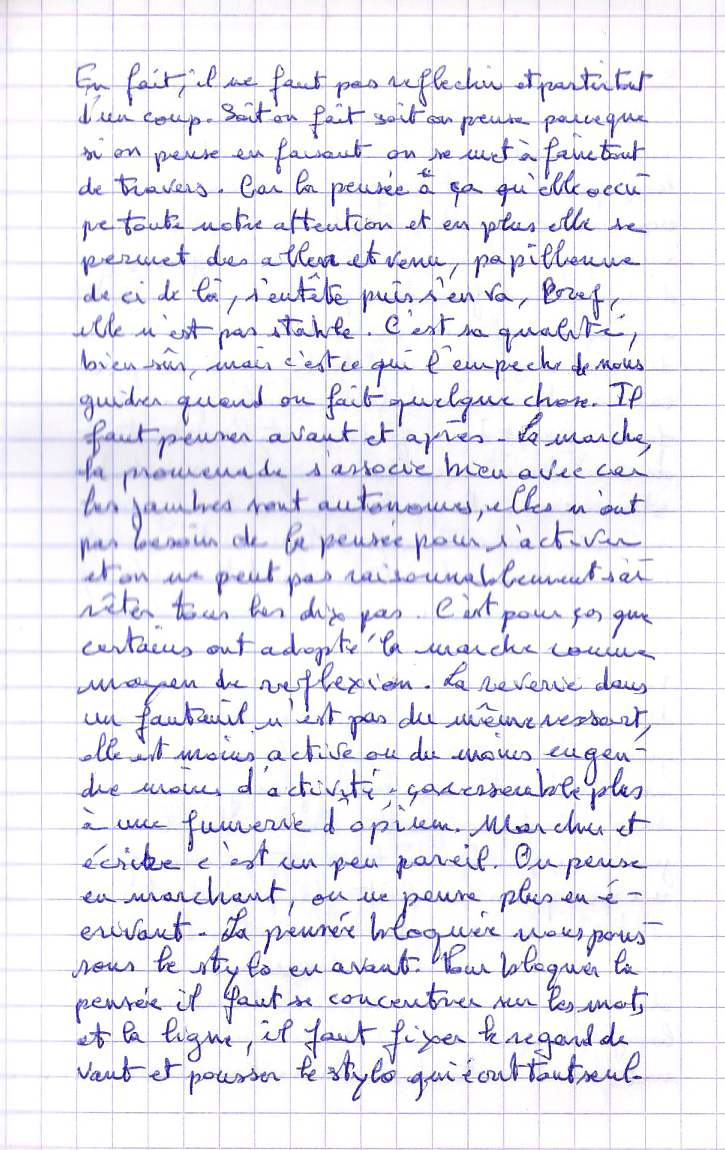 En fait, il ne faut pas reflechir et partir tout
d'un coup. Soit on fait soit on pense parceque
si on pense en faisant on se met à faire tout
de travers. Car la pensée a ça qu'elle occu-
pe toute notre attention et en plus elle se
permet des aller et venu, papillonne
de ci de là, s'entête puis s'en va, Bref,
elle n'est pas stable. C'est sa qualité,
bien sûr, mais c'est ce qui l'empeche de nous
guider quand on fait quelque chose. Il
faut penser avant et après. La marche,
la promenade s'associe bien avec car
les jambes sont autonomes, elles n'ont
pas besoin de la pensée pour s'activer
et on ne peut pas raisonnablement s'ar-
rêter tous les dix pas. C'est pour ça que
certains ont adopté la marche comme
moyen de reflexion. La reverie dans
un fauteuil n'est pas du même ressort,
elle est moins active ou du moins engen-
dre moins d'activité, ça ressemble plus
à une fumerie d'opium. Marcher et
écrire c'est un peu pareil. On pense
en marchant, on ne pense plus en é-
crivant. La pensée bloquée nous pous-
sons le stylo en avant. Pour bloquer la
pensée il faut se concentrer sur les mots
et la ligne, il faut fixer le regard de
vant et pousser le stylo qui écrit tout seul.